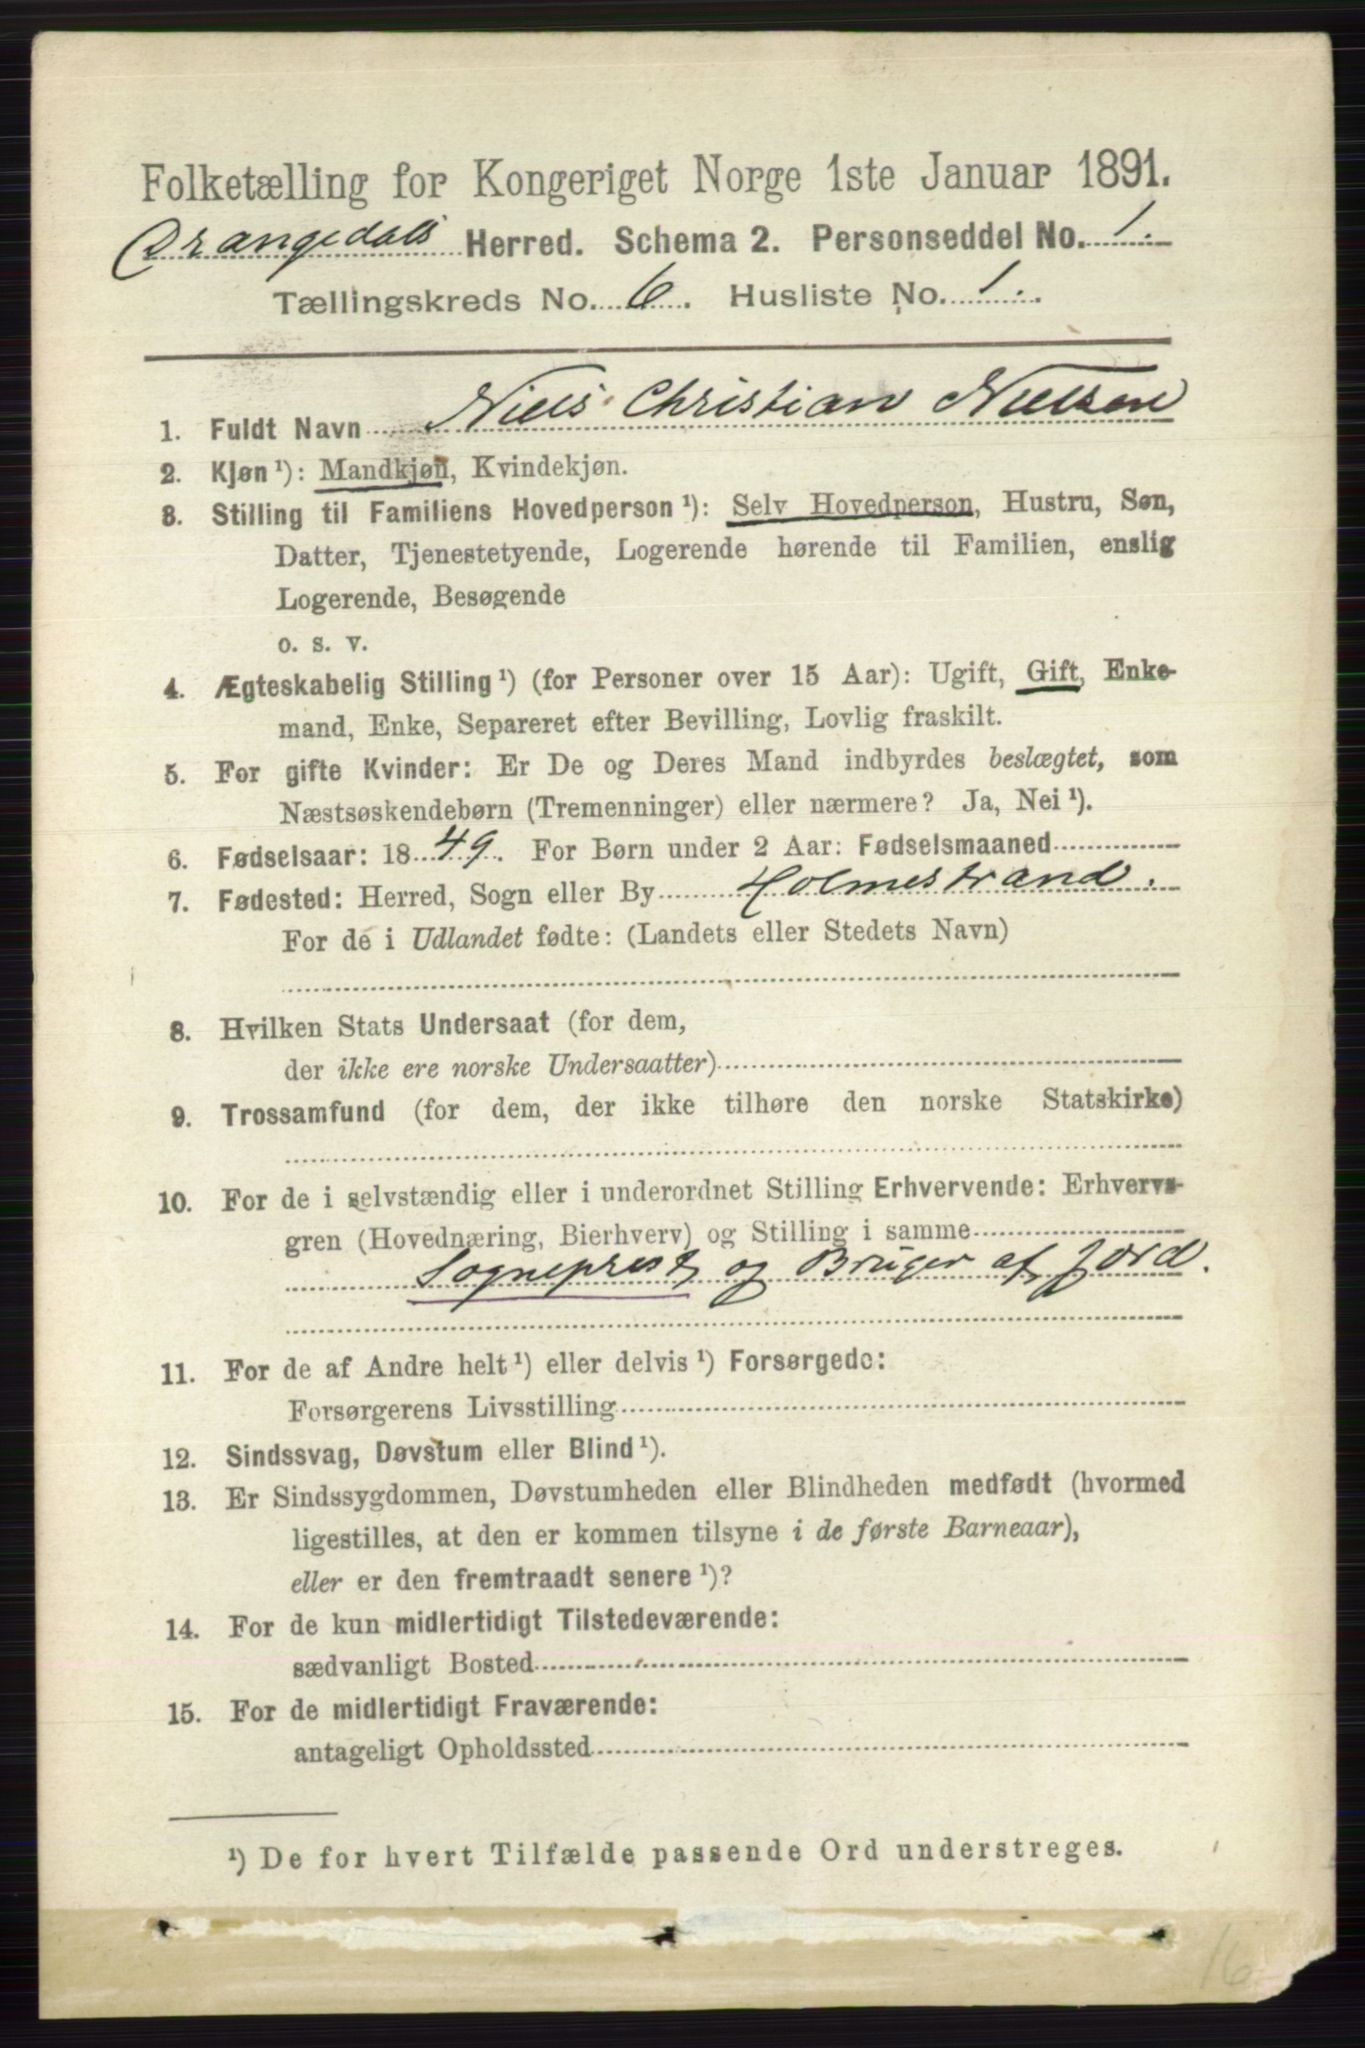 Folketælling for Kongeriget Norge 1ste Januar 1891.
Drangedals Herred. Schema 2. Personseddel No. 1.
Tællingskreds No. 6. Husliste No. 1.
1. Fuldt Navn Niels Christian Nielsen
2. Kjøn ¹): Mandkjøn, Kvindekjøn.
3. Stilling til Familiens Hovedperson ¹): Selv Hovedperson, Hustru, Søn,
Datter, Tjenestetyende, Logerende hørende til Familien, enslig
Logerende, Besøgende
o. s. v.
4. Ægteskabelig Stilling ¹) (for Personer over 15 Aar): Ugift, Gift, Enke-
mand, Enke, Separeret efter Bevilling, Lovlig fraskilt.
5. For gifte Kvinder: Er De og Deres Mand indbyrdes beslægtet, som
Næstsøskendebørn (Tremenninger) eller nærmere? Ja, Nei ¹).
6. Fødselsaar: 18 49. For Børn under 2 Aar: Fødselsmaaned
7. Fødested: Herred, Sogn eller By Holmestrand.
For de i Udlandet fødte: (Landets eller Stedets Navn)
8. Hvilken Stats Undersaat (for dem,
der ikke ere norske Undersaatter)
9. Trossamfund (for dem, der ikke tilhøre den norske Statskirke)
10. For de i selvstændig eller i underordnet Stilling Erhvervende: Erhvervs-
gren (Hovednæring, Bierhverv) og Stilling i samme
Sogneprest og Bruger af Jord.
11. For de af Andre helt ¹) eller delvis ¹) Forsørgede:
Forsørgerens Livsstilling
12. Sindssvag, Døvstum eller Blind ¹).
13. Er Sindssygdommen, Døvstumheden eller Blindheden medfødt (hvormed
ligestilles, at den er kommen tilsyne i de første Barneaar),
eller er den fremtraadt senere ¹)?
14. For de kun midlertidigt Tilstedeværende:
sædvanligt Bosted
15. For de midlertidigt Fraværende:
antageligt Opholdssted
¹) De for hvert Tilfælde passende Ord understreges.
16